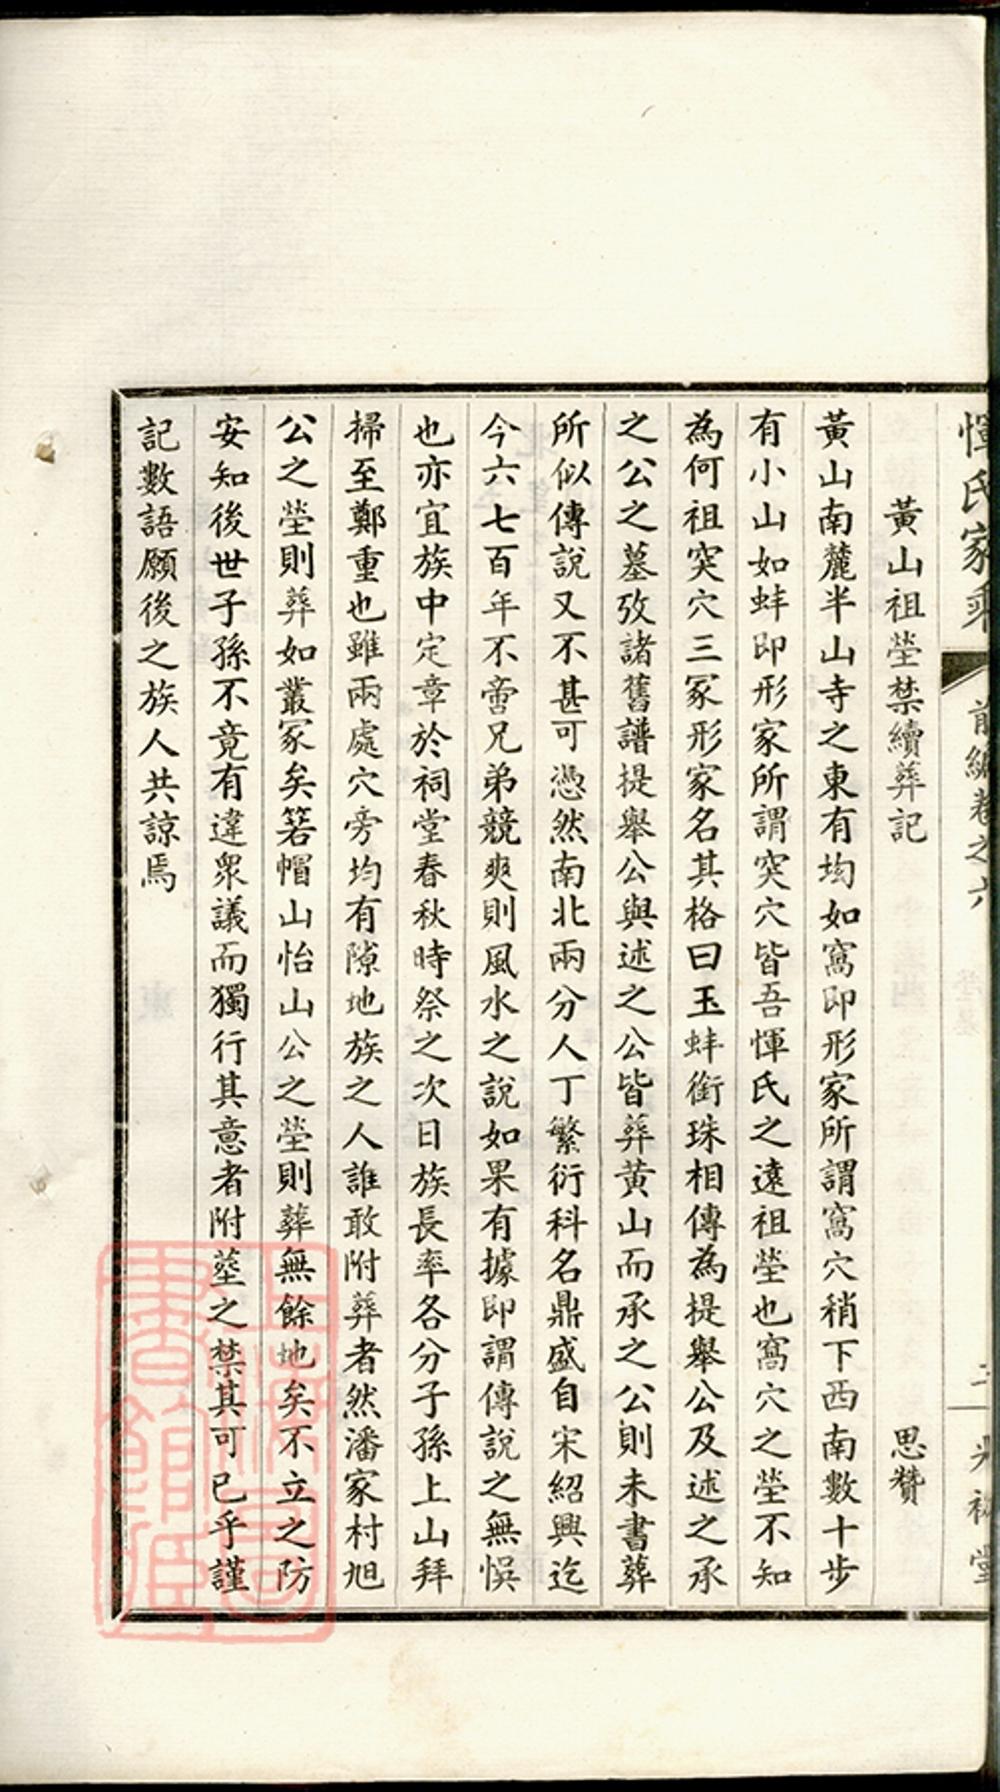 惲氏家乘 前編卷之六 光裕堂
黃山祖塋禁續葬記 思贊
黃山南麓半山寺之東有坳如窩即形家所謂窩穴稍下西南數十步
有小山如蚌即形家所謂突穴皆吾惲氏之遠祖塋也窩穴之塋不知
為何祖突穴三冢形家名其格曰玉蚌銜珠相傳為提舉公及述之承
之公之墓攷諸舊譜提舉公與述之公皆葬黃山而承之公則未書葬
所似傳說又不甚可憑然南北兩分人丁繁衍科名鼎盛自宋紹興迄
今六七百年不啻兄弟競爽則風水之說如果有據即謂傳說之無悞
也亦宜族中定章於祠堂春秋時祭之次日族長率各分子孫上山拜
掃至鄭重也雖兩處穴旁均有隙地族之人誰敢附葬者然潘家村旭
公之塋則葬如叢冢矣箬帽山怡山公之塋則葬無餘地矣不立之防
安知後世子孫不竟有違眾議而獨行其意者附塟之禁其可已乎謹
記數語願後之族人共諒焉
上海圖書館藏